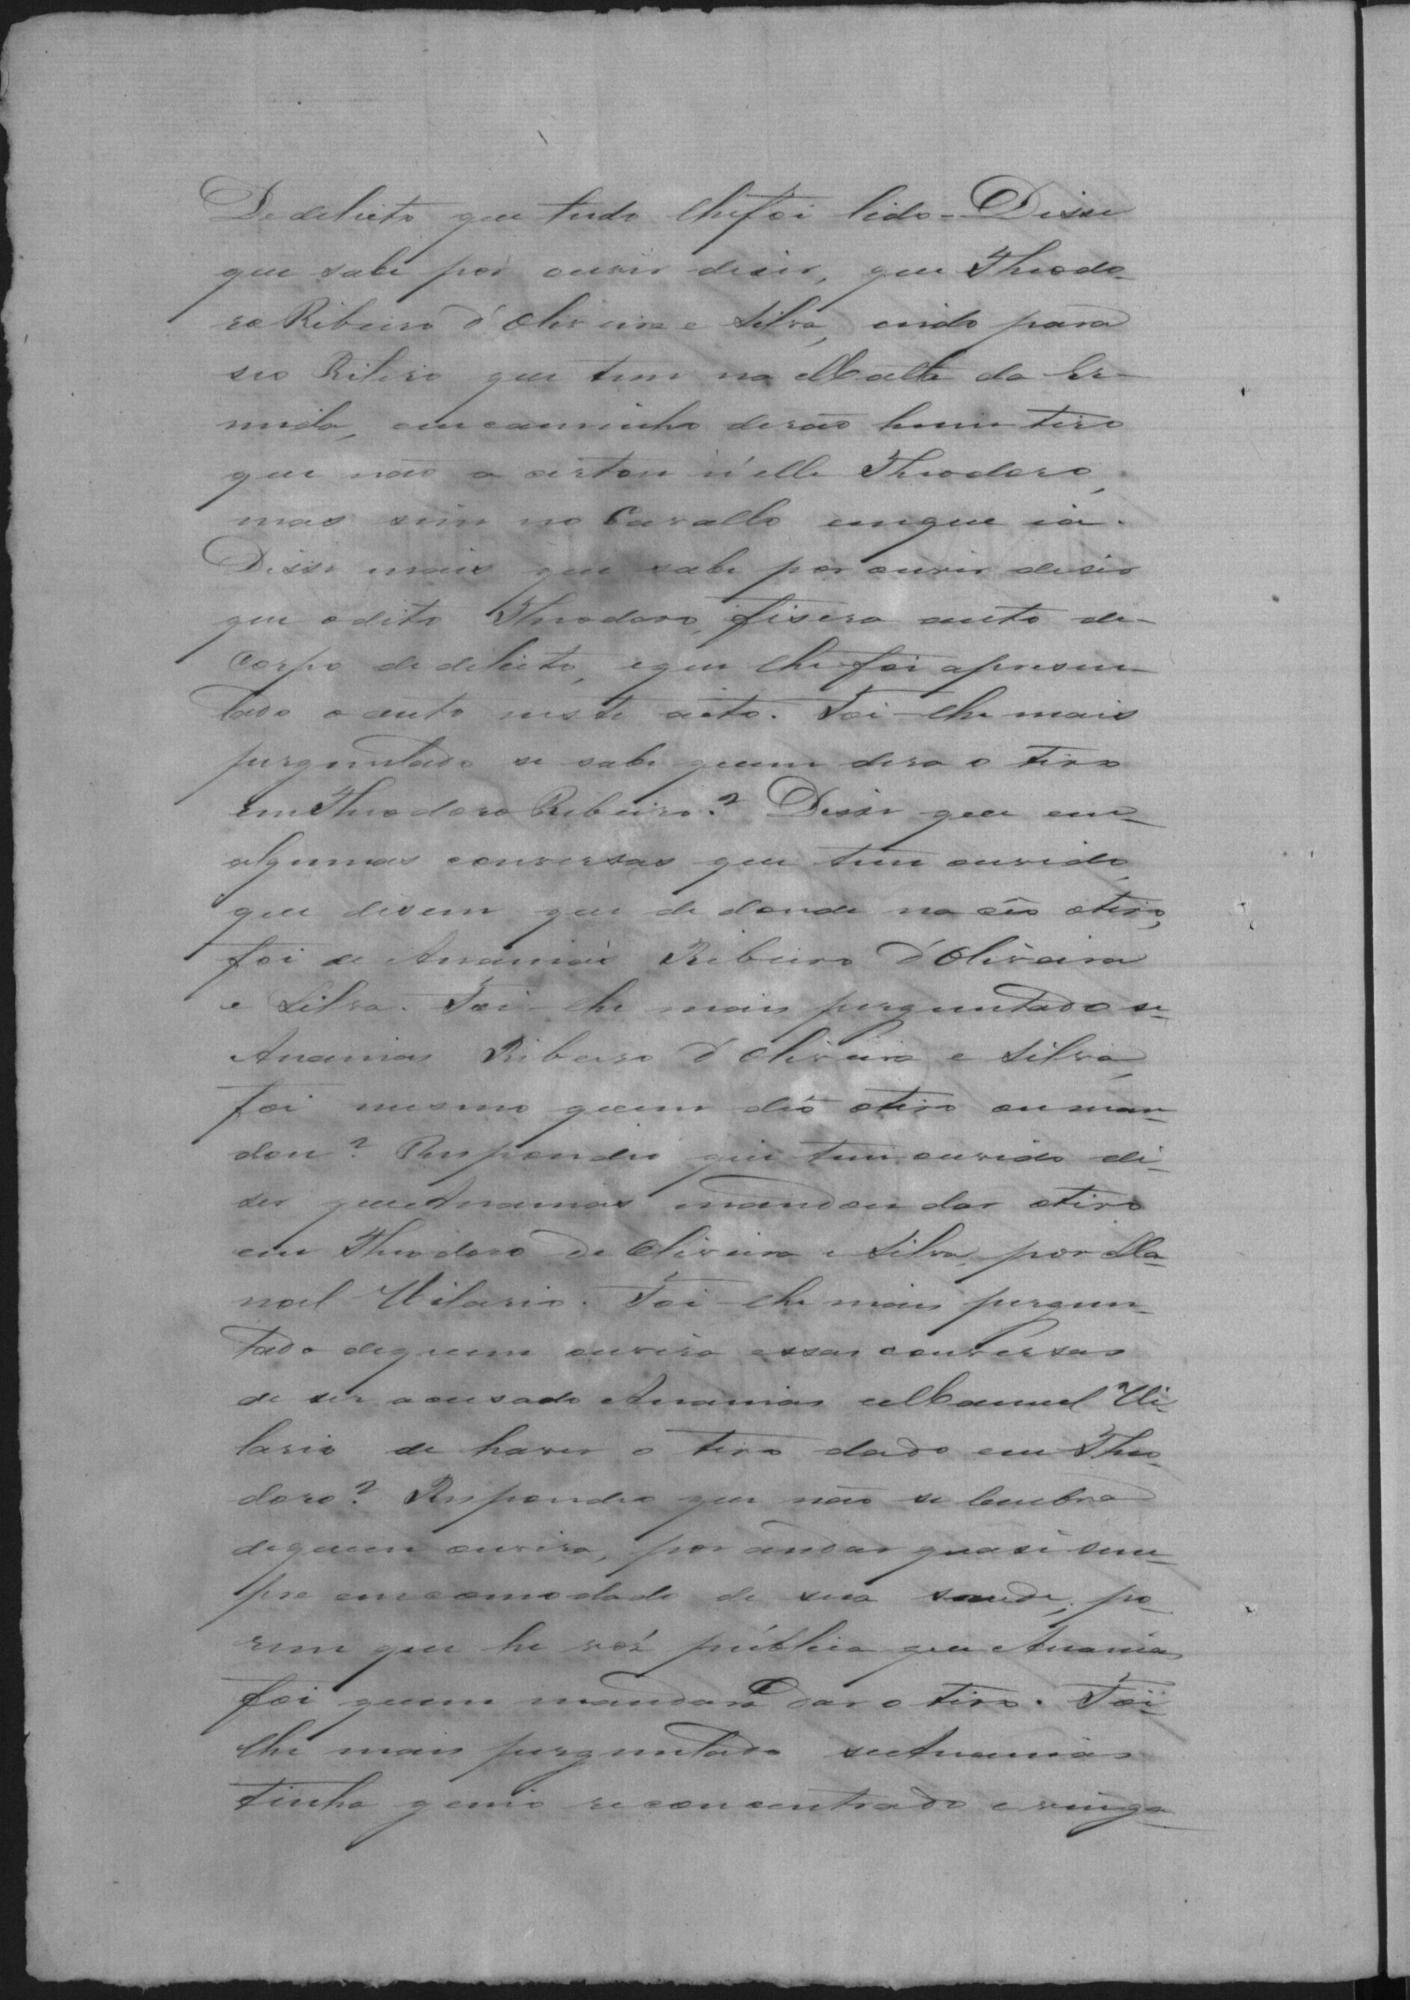 De delicto que tudo lhe foi lido - Disse
que sabe por ouvir diser, que Theodo-
ro Ribeiro d'Oliveira e Silva, indo para
seo Ritiro que tem na Matta da Er-
mida, em caminho derão hum tiro
que não a certou n'elle Theodoro,
mas sim no Cavallo em que ia.
Disse mais que sabe por ouvir diser
que o dito Theodoro, fisera auto de
Corpo de delicto, e que lhe foi apresen-
tado o auto neste acto. Foi-lhe mais
perguntado se sabe quem dera o tiro
em Theodoro Ribeiro? Disse que em
algumas conversas que tem ouvido,
que disem que de donde naceo o tiro,
foi de Ananias Ribeiro d'Oliveira
e Silva. Foi-lhe mais perguntado se
Ananias Ribeiro d'Oliveira e Silva,
foi mesmo quem deo o tiro ou man-
dou? Respondeo que tem ouvido di-
ser que Ananias mandou dar o tiro
em Theodoro de Oliveira e Silva, por Ma-
noel Hilario. Foi-lhe mais pergun-
tado de quem ouvira essas conversas
de ser acusado Ananias e Manuel Hi-
lario de haver o tiro dado em Theo-
doro? Respondeo que não se lembra
de quem ouvira, por andar quasi sem-
pre encomodado de sua saude, po-
rem que he voz pública que Ananias
foi quem mandara dar o tiro. Foi-
lhe mais perguntado se Ananias
tinha genio reconcentrado e vinga-